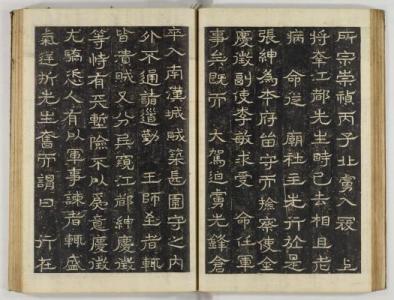 所宗崇禎丙子北虜入寇 上
將幸江都先生時已去相且老
病 命從 廟社主先行於是
張紳為本府留守而撿察使金
慶徵副使李敏求受 命任軍
事矣旣而 大駕迫虜先鋒倉
卒入南漢城賊築長圍守之內
外不通諸道勤 王師至者輒
皆潰賊又分兵窺江都紳慶徵
等恃有天塹險不以為意慶徵
尤驕恣人有以軍事諫者輒盛
氣逆折先生奮而謂曰 行在